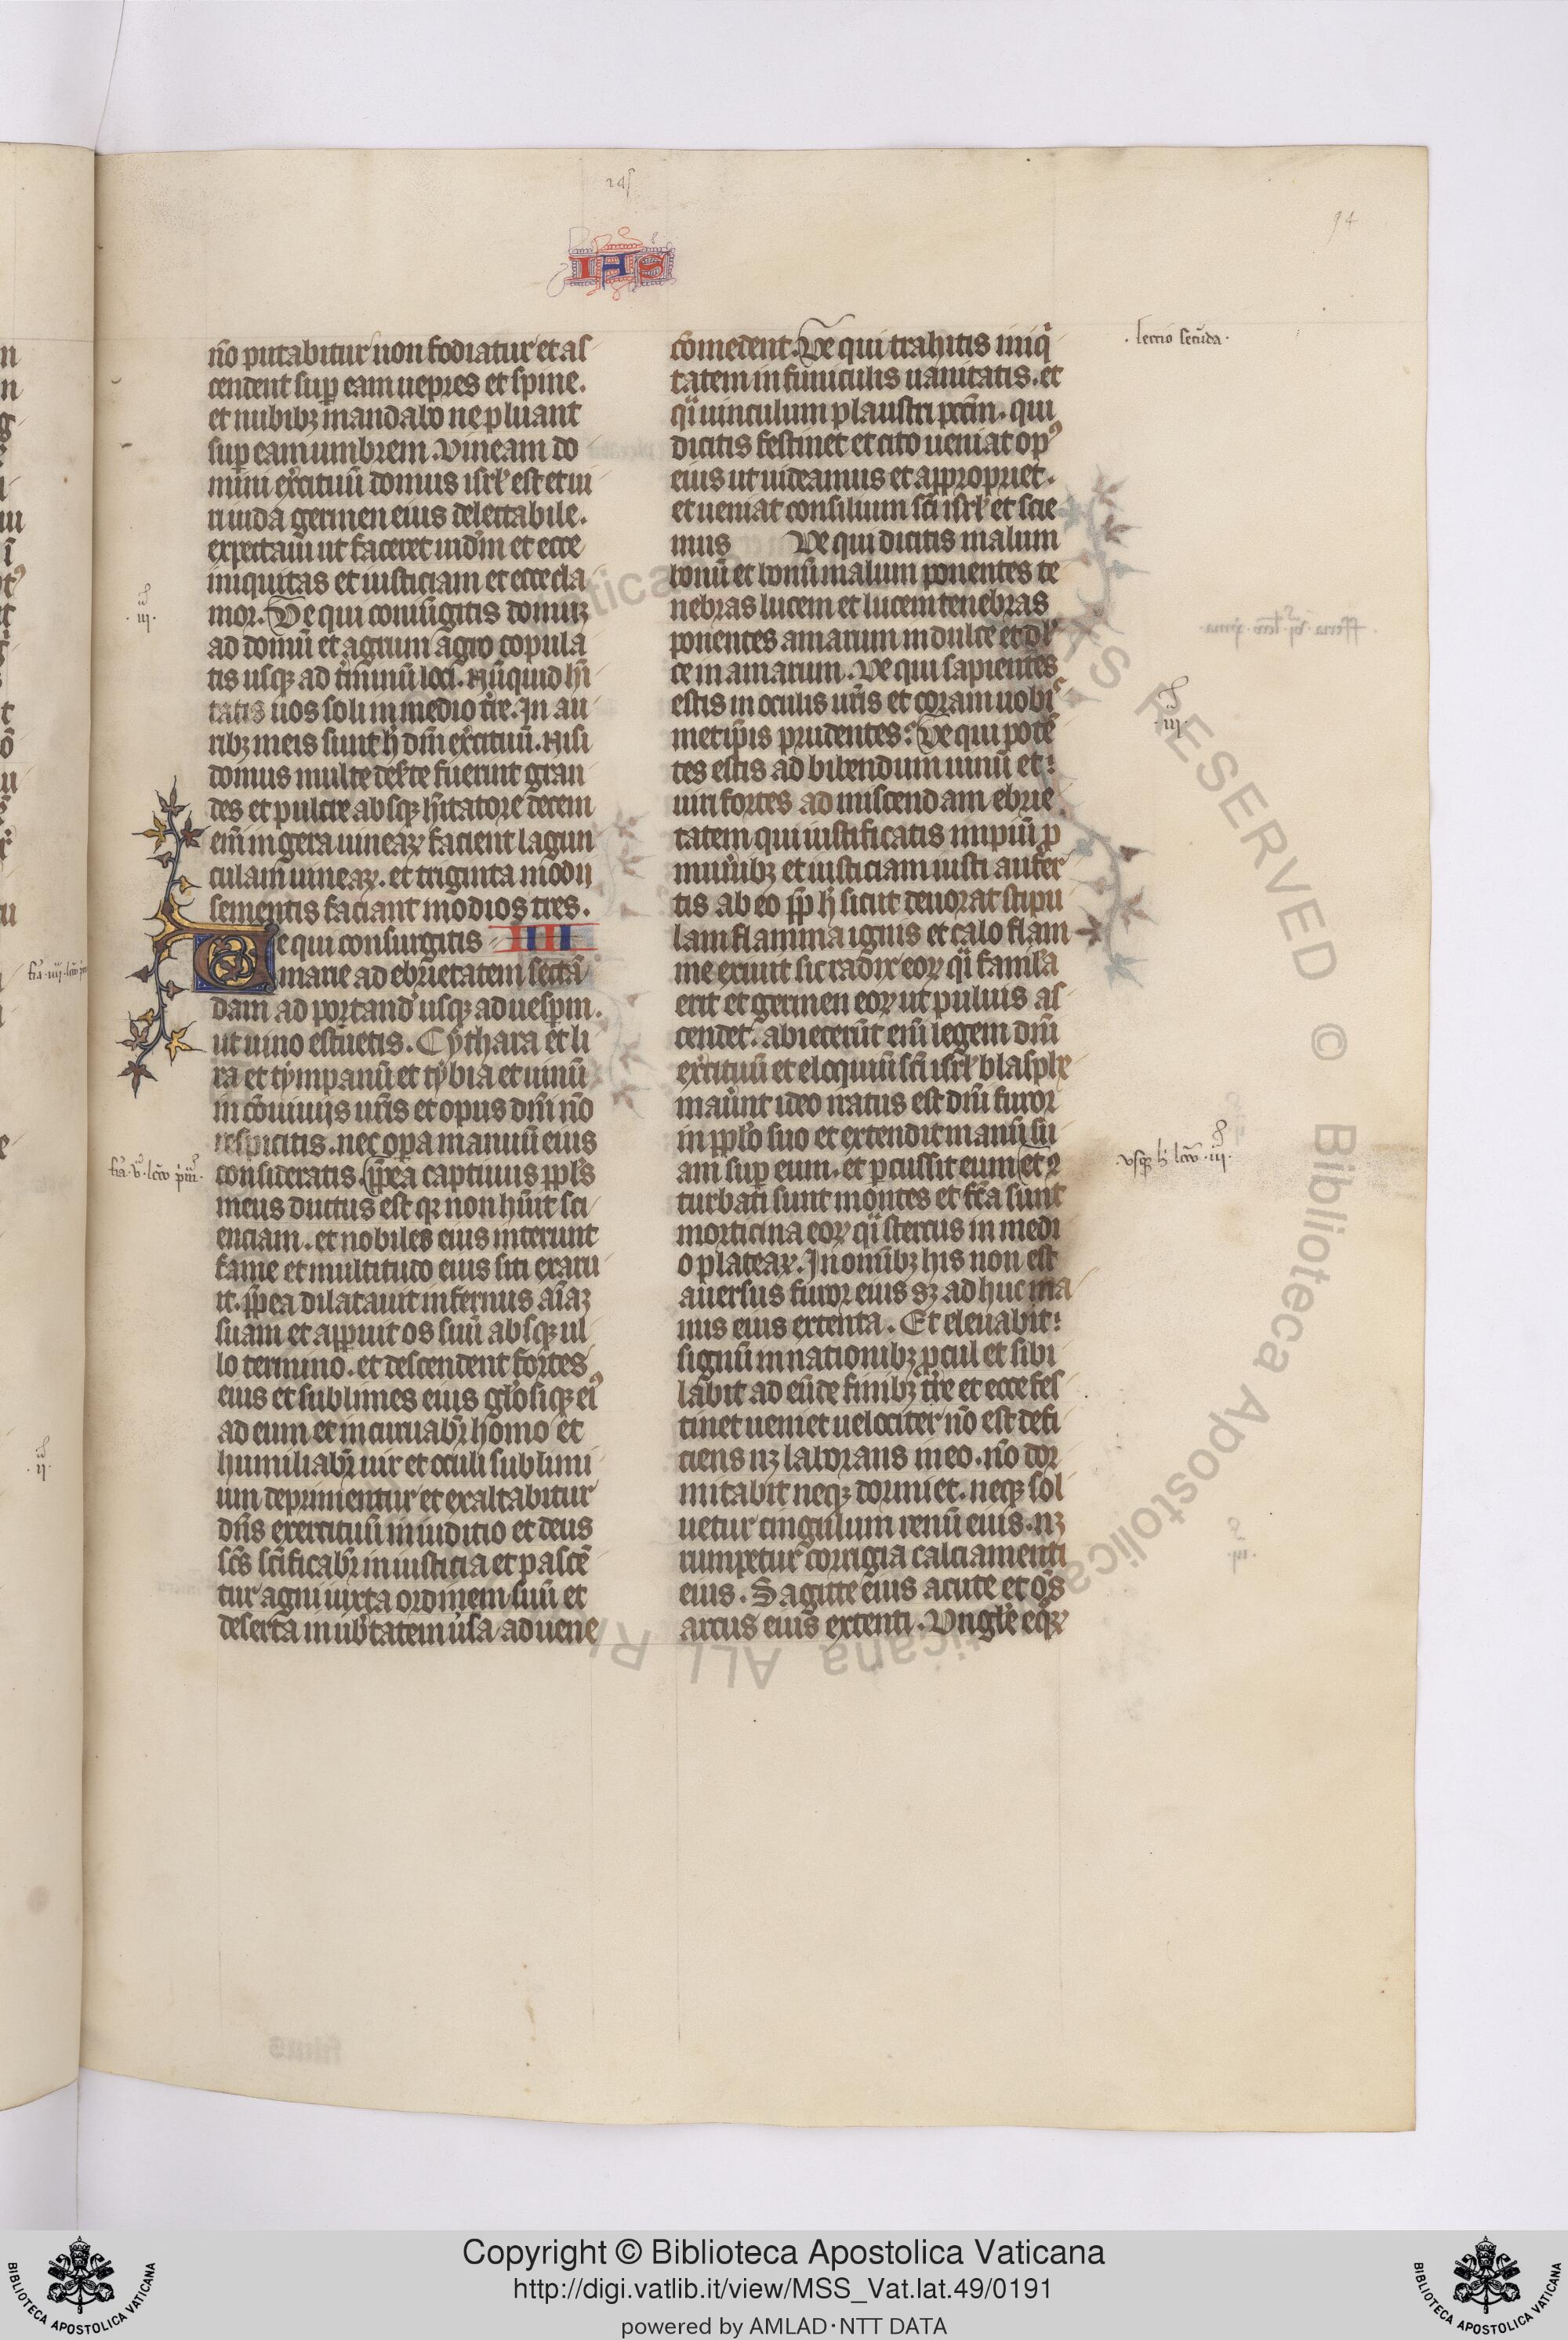 245
94
IHS
nõ putabitur non fodiatur et as
cendent sup eam uepres et spine.
et nubibꝫ mandabo ne pluant
sup eam imbrem. Vineam do
mini exercituũ domus isrl̃ est et ui
ri iuda germen eius delectabile.
expectaui ut faceret iudm̃ et ecce
iniquitas et iusticiam et ecce cla
mor. Ve qui coniũgitis domũ
ad domũ et agrum agro copula
tis usqꝫ ad t̾minũ loci. Nũquid hĩ
tatis uos soli in medio t̾re. In au
ribꝫ meis sunt h̾ dñi exercituũ. Nisi
domus multe des̾te fuerint gran
des et pulcre absqꝫ hĩtatore decem
eñi iugera uinearꝫ facient lagun
culam uinearꝫ. et triginta modii
sementis faciant modios tres.
Ve qui consurgitis IIII
mane ad ebrietatem sectã
dam ad portand̾ usqꝫ ad uesp̃m.
ut uino estuetis. Cythara et li
ra et tympanũ et tybia et uinũ
in cõuiuiis ur̃is et opus dñi nõ
respicitis. nec opa manuũ eius
consideratis. p̃p̃ea captiuus ppl̃s
meus ductus est qꝛ non hũit sci
enciam. et nobiles eius interiunt
fame et multitudo eius siti exaru
it. p̃p̃ea dilatauit infernus aĩaꝫ
suam et apperuit os suũ absqꝫ ul
lo termino. et descendent fortes
eius et sublimes eius gl̃osiqꝫ ei᾽
ad eum et incuruabr̃ homo et
humiliabr̃ uir et oculi sublimi
um deprimentur et exaltabitur
dñs exercituũ in iuditio et deus
sc̃s sc̃ificabr̃ in iusticia et pascẽ
tur agni iuxta ordinem suũ et
deserta in ub̾tatem u̾sa aduene
cõmedent. Ve qui trahitis iniqͥ
tatem in funiculis uanitatis. et
qͣi uinculum plaustri pcc̃m. qui
dicitis festinet et cito ueniat op᾽
eius ut uideamus et appropriet.
et ueniat consilium sc̃i isrl̃ et scie
mus Ve qui dicitis malum
bonũ et bonũ malum ponentes te
nebras lucem et lucem tenebras
ponentes amarum in dulce et dl̃
ce in amarum. Ve qui sapientes
estis in oculis ur̃is et coram uobiᶜ
metip̃is prudentes: Ve qui potẽ
tes estis ad bibendum uinũ et:
uiri fortes ad miscendam ebrie
tatem qui iustificatis impiũ p̱
muñibꝫ et iusticiam iusti aufer
tis ab eo p̃p̃ h̾ sicut deuorat stipu
lam flamma ignis et calo flam
me exiuit sic radix eoꝝ qͣi famil̃a
erit et germen eoꝝ ut puluis as
cendet. abiecerũt eñi legem dñi
exercituũ et eloquiũ sc̃i isrl̃ blasphe
mau̾nt ideo iratus est dñi furor
in ppl̃o suo et extendit manũ su
am sup eum. et pcussit eum et ꝯ
turbati sunt montes et fc̃a sunt
morticina eoꝝ qͣi stercus in medi
o platearꝝ. In oñibꝫ his non est
auersus furor eius sꝫ ad huc ma
nus eius extenta. Et eleuabit:
signũ in nationibꝫ pcul et sibi
labit ad eũ de finibꝫ t̾re et ecce fes
tinet ueniet uelociter nõ est defi
ciens nꝫ laborans in eo. nõ dor
mitabit neqꝫ dormiet. neqꝫ sol
uetur cingulum renũ eius. nꝫ
rumpetur corrigia calciamenti
eius. Sagitte eius acute et oẽs
arcus eius extenti. Vngl̃e eqͦꝝ
.lectio secũda.
.iii.
.iii.
.vsqꝫ h̾ lcc̃o .iii.
.ii.
Copyright © Biblioteca Apostolica Vaticana
http://digi.vatlib.it/view/MSS_Vat.lat.49/0191
powered by AMLAD·NTT DATA
BIBLIOTECA APOSTOLICA VATICANA
BIBLIOTECA APOSTOLICA VATICANA